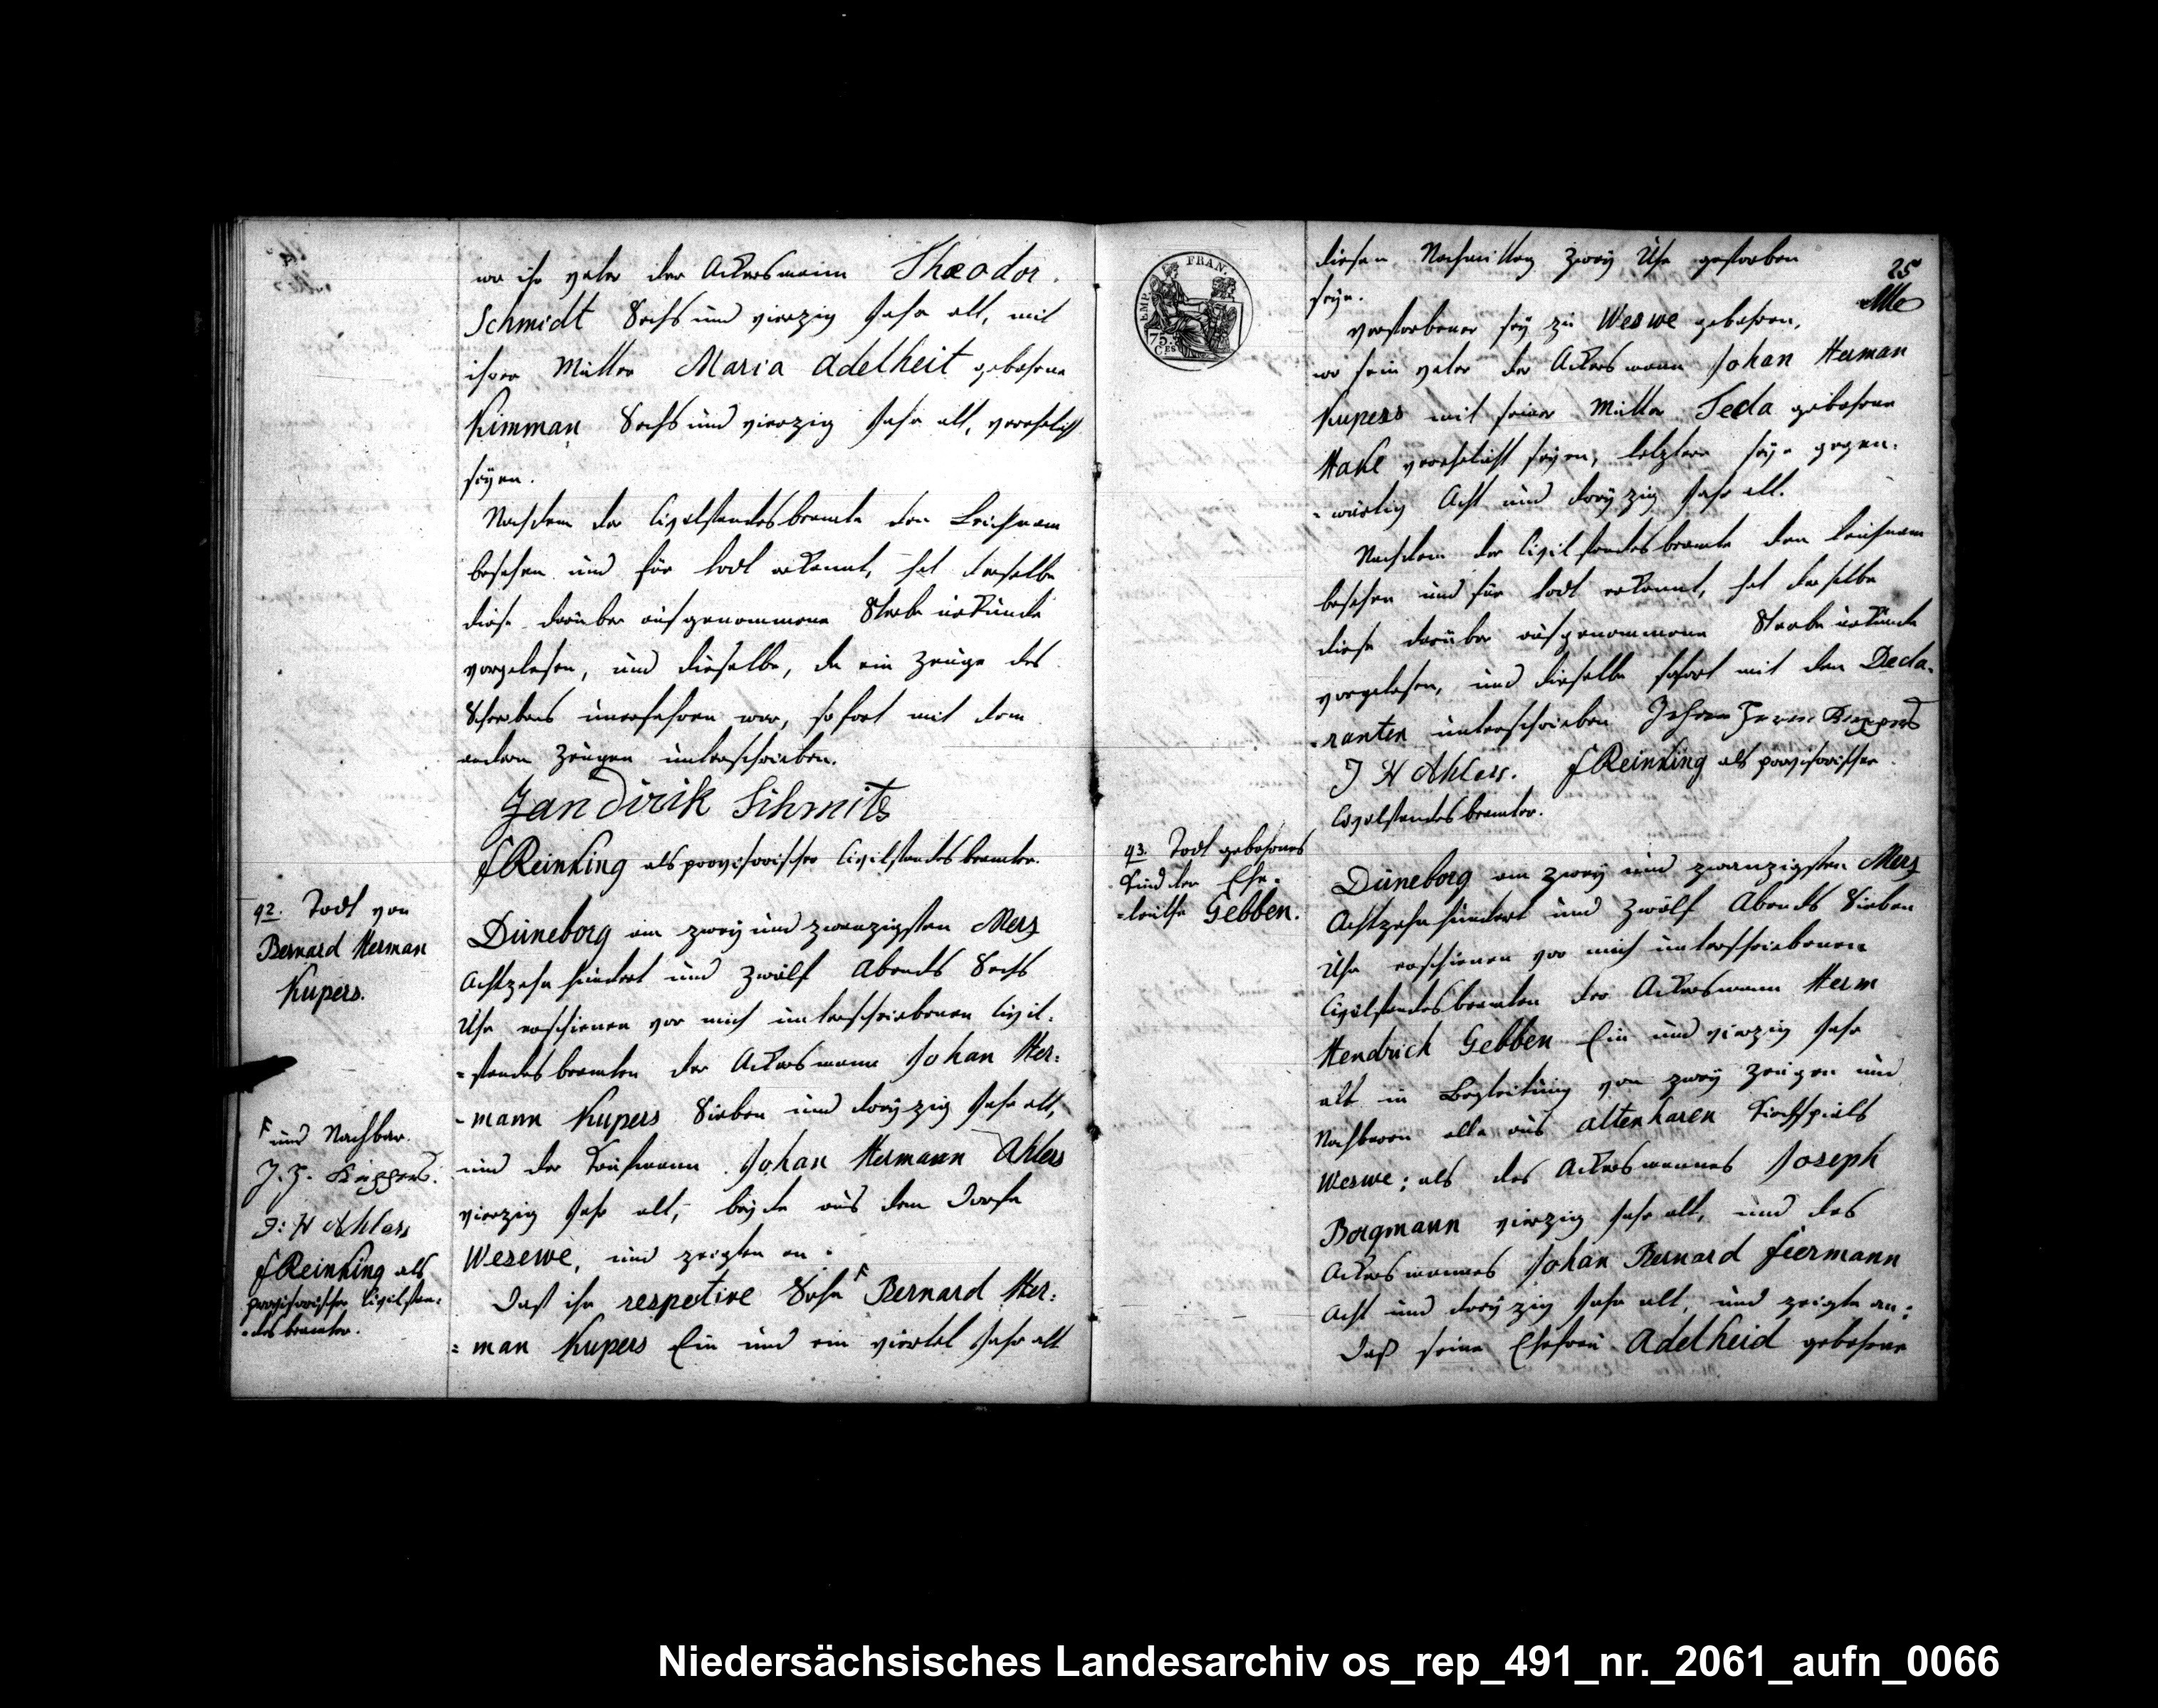 wo ihr Vater der Ackersmann Theodor
Schmidt Sechs und vierzig Jahr alt, mit
ihrer Mutter Maria Adelheit gebohrne
Kimman Sechs und vierzig Jahr alt, verehelicht
seyen.
Nachdem der Civilstandesbeamte den Leichnam
besehen und für todt erkannt, hat derselbe
diese darüber aufgenommene Sterbe urkunde
vorgelesen, und dieselbe, da ein Zeuge des
Schreibens unerfahren war, sofort mit dem
andern Zeugen unterschrieben.
Jan dirik Schmits
F Reinking als provisorischer Civilstandesbeamter.
92. Todt von
Bernard Herman
Kupers.
Düneborg am zwey und zwanzigsten Merz
Achtzehnhundert und Zwölf Abends Sechs
Uhr erschienen vor mich unterschriebenen Civil-
-standesbeamten der Ackersmann Johan Her-
-mann Kupers Sieben und dreyzig Jahr alt,
und der Kaufmann Johan Hermann Ahlers
vierzig Jahr alt, beyde aus dem Dorfe
Wesewe, und zeigten an:
Daß ihr respective Sohn F Bernard Her-
-man Kupers Ein und ein viertel Jahr alt
F und Nachbar.
J. H. Küppers.
J: H Ahlers
F Reinking als
provisorischer Civilstan-
-des beamter.
EMP. FRAN.
75.
CES
25
diesen Nachmittag zwey Uhr gestorben
seye.
Verstorbener sey zu Weswe gebohren,
wo sein Vater der Ackersmann Johan Herman
Kupers mit seiner Mutter Teda gebohrne
Hake verehelicht seyen, letztere seye gegen-
-wärtig Acht und dreyzig Jahr alt.
Nachdem der Civilstandesbeamte den Leichnam
besehen und für todt erkannt, hat derselbe
diese darüber aufgenommene Sterbe urkunde
vorgelesen, und dieselbe sofort mit den Decla-
-ranten unterschrieben Johan Herm Küppers
J H Ahlers. F Reinking als provisorischer
Civilstandesbeamter.
93. Todt gebohrnes
Kind der Ehe-
-leuthe Gebben.
Düneborg am zwey und zwanzigsten Merz
Achtzehnhundert und Zwölf Abends Sieben
Uhr erschienen vor mich unterschriebenen
Civilstandesbeamten der Ackersmann Herm
Hendrich Gebben Ein und vierzig Jahr
alt in Begleitung von zwey Zeugen und
Nachbaren alle aus Altenharen Kirchspiels
Weswe; als des Ackersmannes Joseph
Borgmann vierzig Jahr alt, und des
Ackersmannes Johan Bernard Fiermann
Acht und dreyzig Jahr alt, und zeigte an:
Daß seine Ehefrau Adelheid gebohrne
Niedersächsisches Landesarchiv os_rep_491_nr._2061_aufn_0066